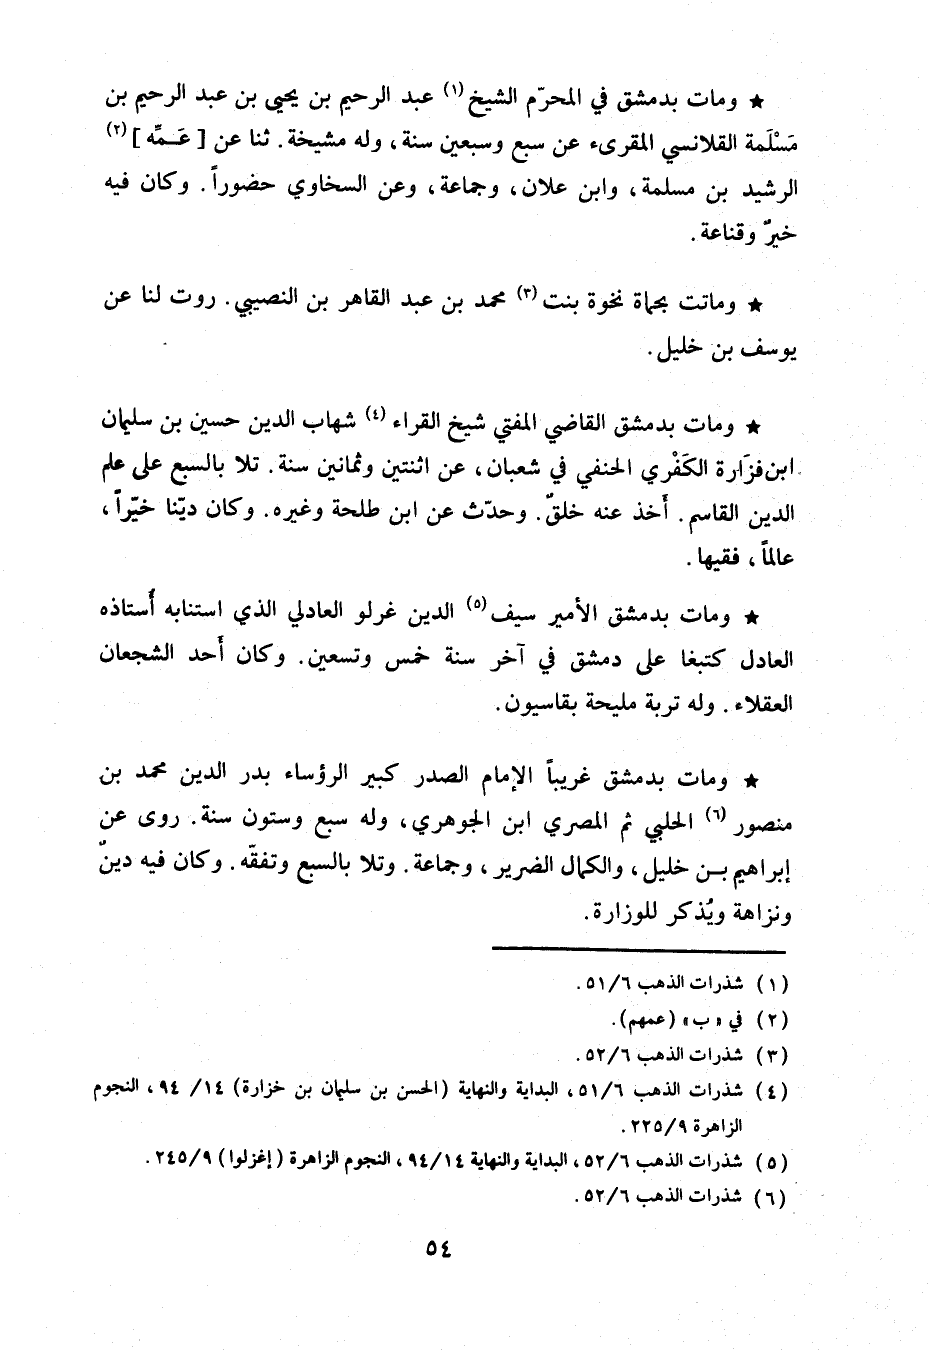 ★ ومات بدمشق في المحرّم الشيخ (١) عبد الرحيم بن يحيى بن عبد الرحيم بن
مَسْلَمة القلانسي المقرىء عن سبع وسبعين سنة، وله مشيخة. ثنا عن [ عَـمِّه ] (٢)
الرشيد بن مسلمة، وابن علان، وجماعة، وعن السخاوي حضوراً. وكان فيه
خيرٌ وقناعة.
★ وماتت بحماة نخوة بنت (٣) محمد بن عبد القاهر بن النصيبي. روت لنا عن
يوسف بن خليل.
★ ومات بدمشق القاضي المفتي شيخ القراء (٤) شهاب الدين حسين بن سليمان
ابن فزَارة الكَفْري الحنفي في شعبان، عن اثنتين وثمانين سنة. تلا بالسبع على علم
الدين القاسم. أَخذ عنه خلقٌ. وحدّث عن ابن طلحة وغيره. وكان ديّنا خيّراً،
عالماً، فقيها.
★ ومات بدمشق الأمير سيف (٥) الدين غرلو العادلي الذي استنابه أُستاذه
العادل كتبغا على دمشق في آخر سنة خمس وتسعين. وكان أَحد الشجعان
العقلاء. وله تربة مليحة بقاسيون.
★ ومات بدمشق غريباً الإمام الصدر كبير الرؤساء بدر الدين محمد بن
منصور (٦) الحلبي ثم المصري ابن الجوهري، وله سبع وستون سنة. روى عن
إبراهيم بـن خليل، والكمال الضرير، وجماعة. وتلا بالسبع وتفقّه. وكان فيه دينٌ
ونزاهة ويُذكر للوزارة.
(١) شذرات الذهب ٥١/٦.
(٢) في «ب» (عمهم).
(٣) شذرات الذهب ٥٢/٦.
(٤) شذرات الذهب ٥١/٦، البداية والنهاية (الحسن بن سليمان بن خزارة) ١٤/ ٩٤، النجوم
الزاهرة ٢٢٥/٩.
(٥) شذرات الذهب ٥٢/٦، البداية والنهاية ٩٤/١٤، النجوم الزاهرة (إغزلوا) ٢٤٥/٩.
(٦) شذرات الذهب ٥٢/٦.
٥٤